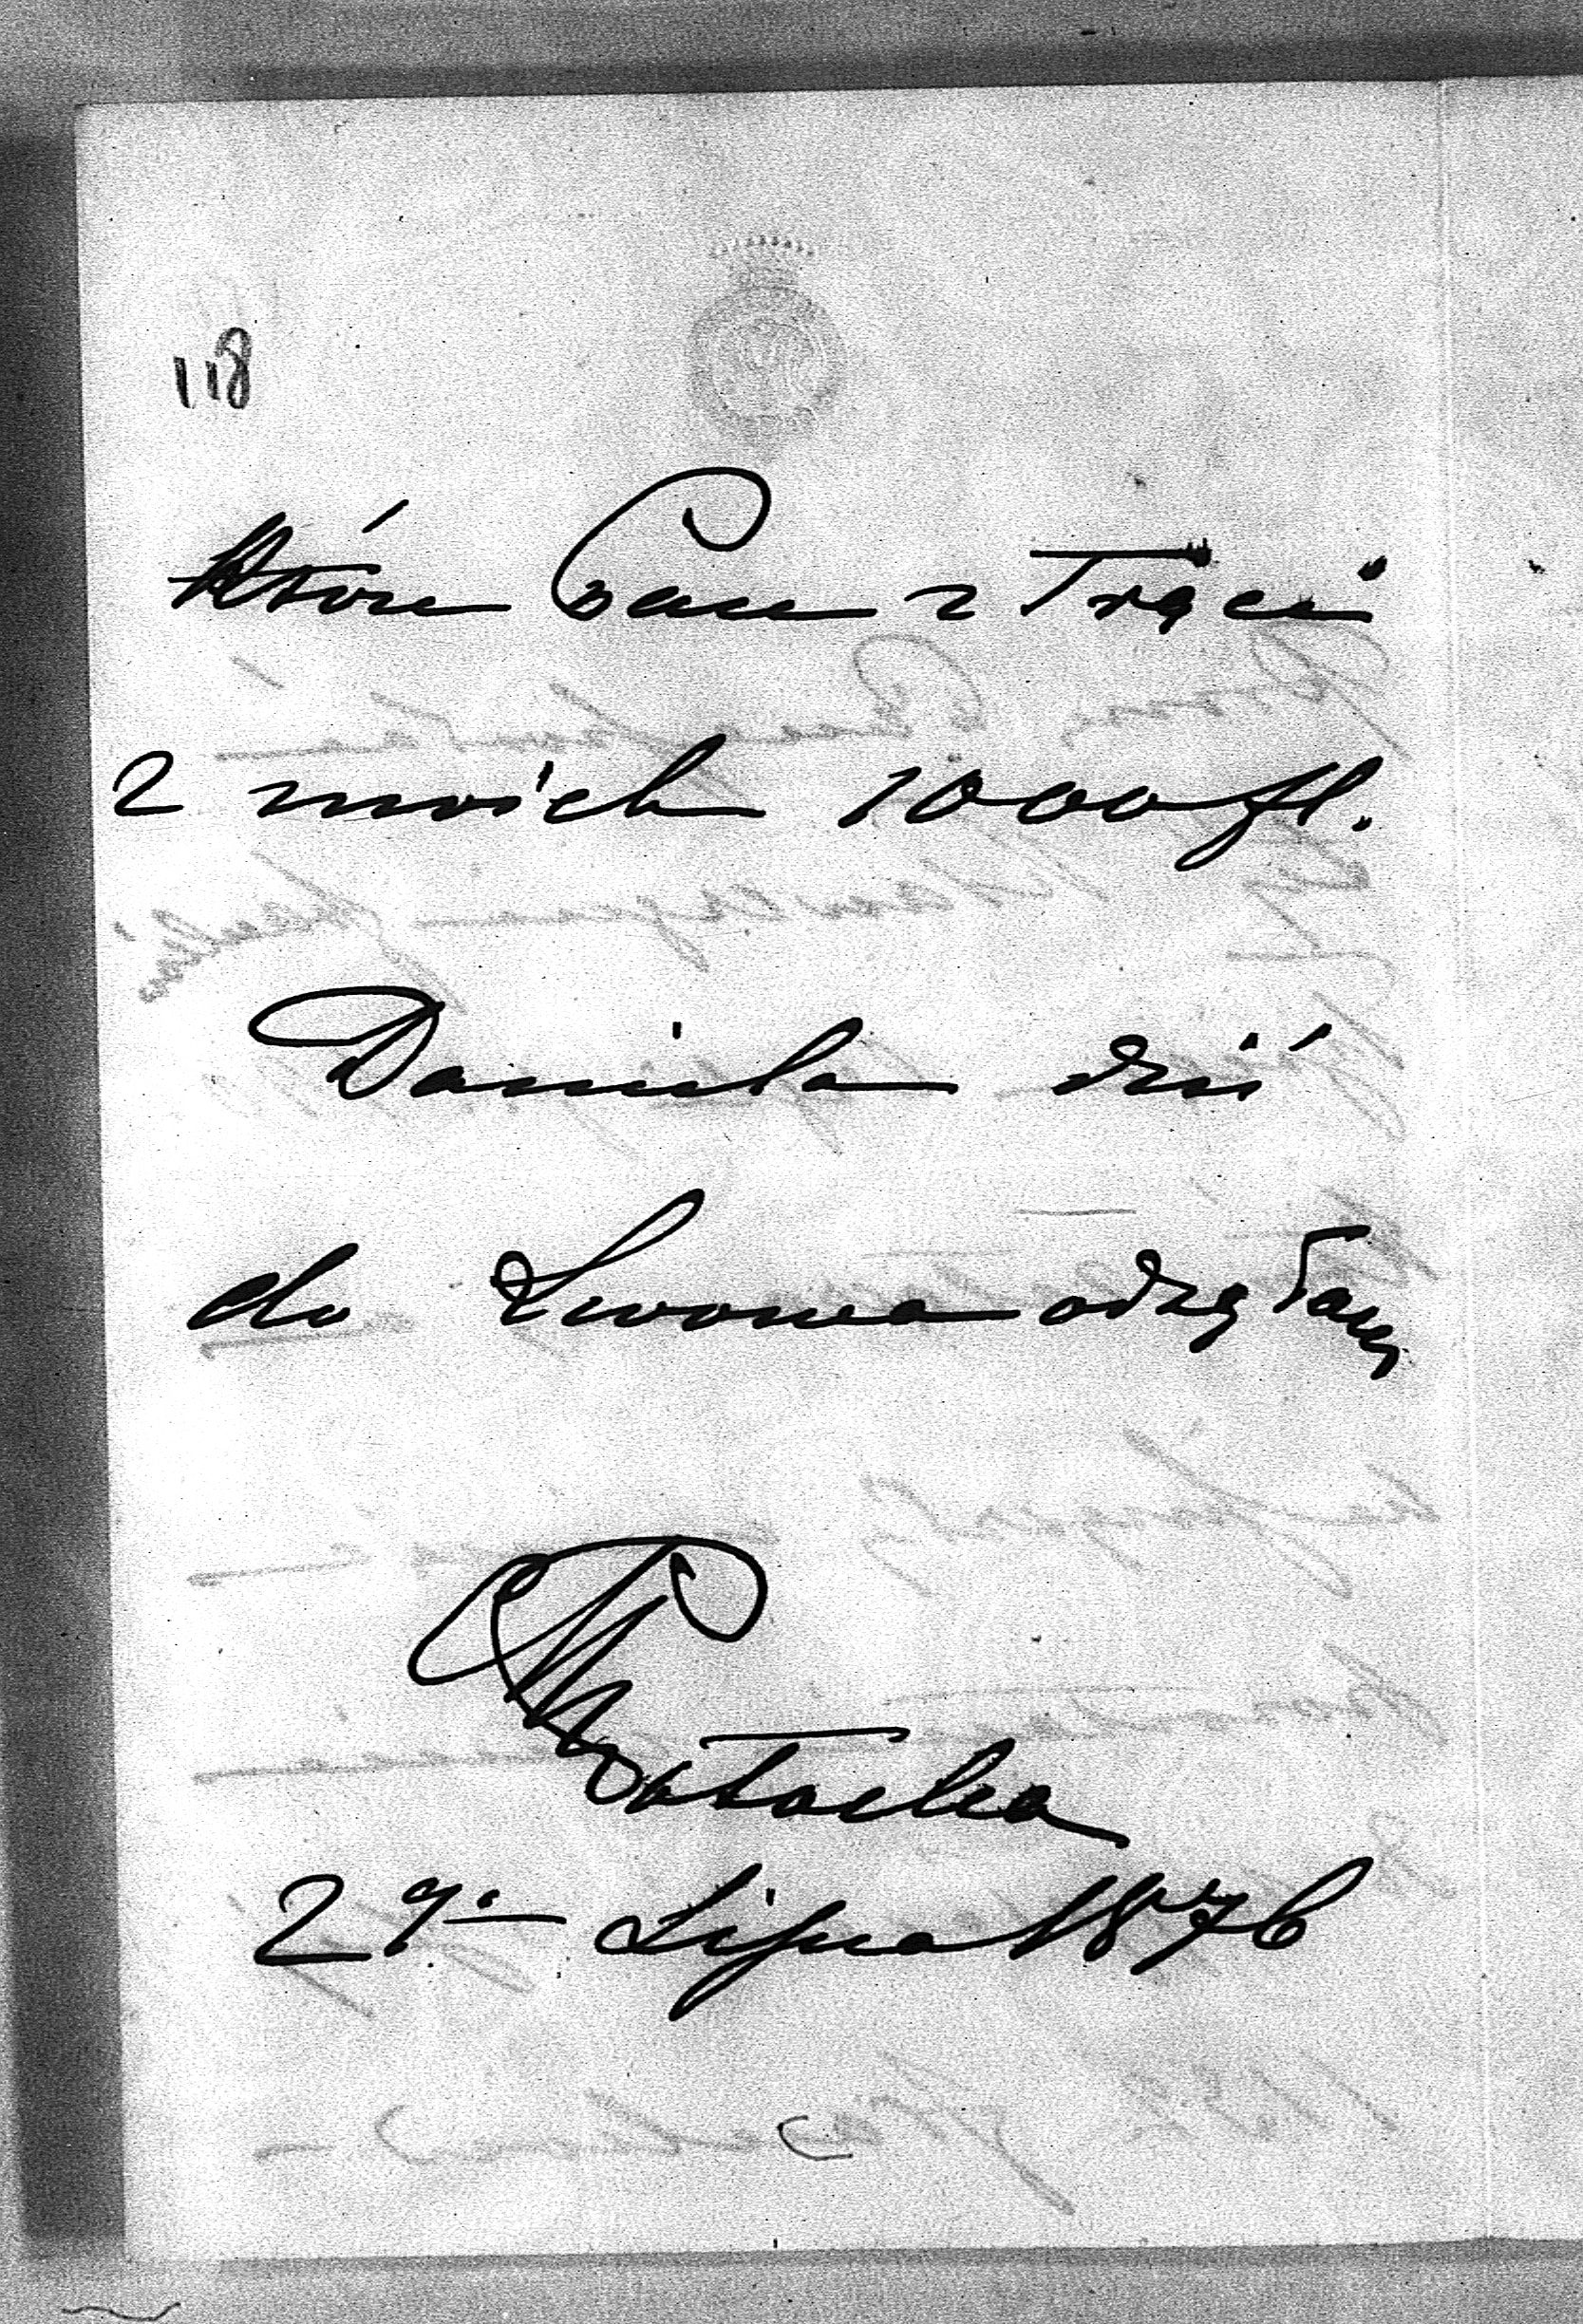 118
które Pan strąci
z moich 1000 fl.
Daniela dziś
do Lwowa odsyłam
MPotocka
29. Lipca 1876